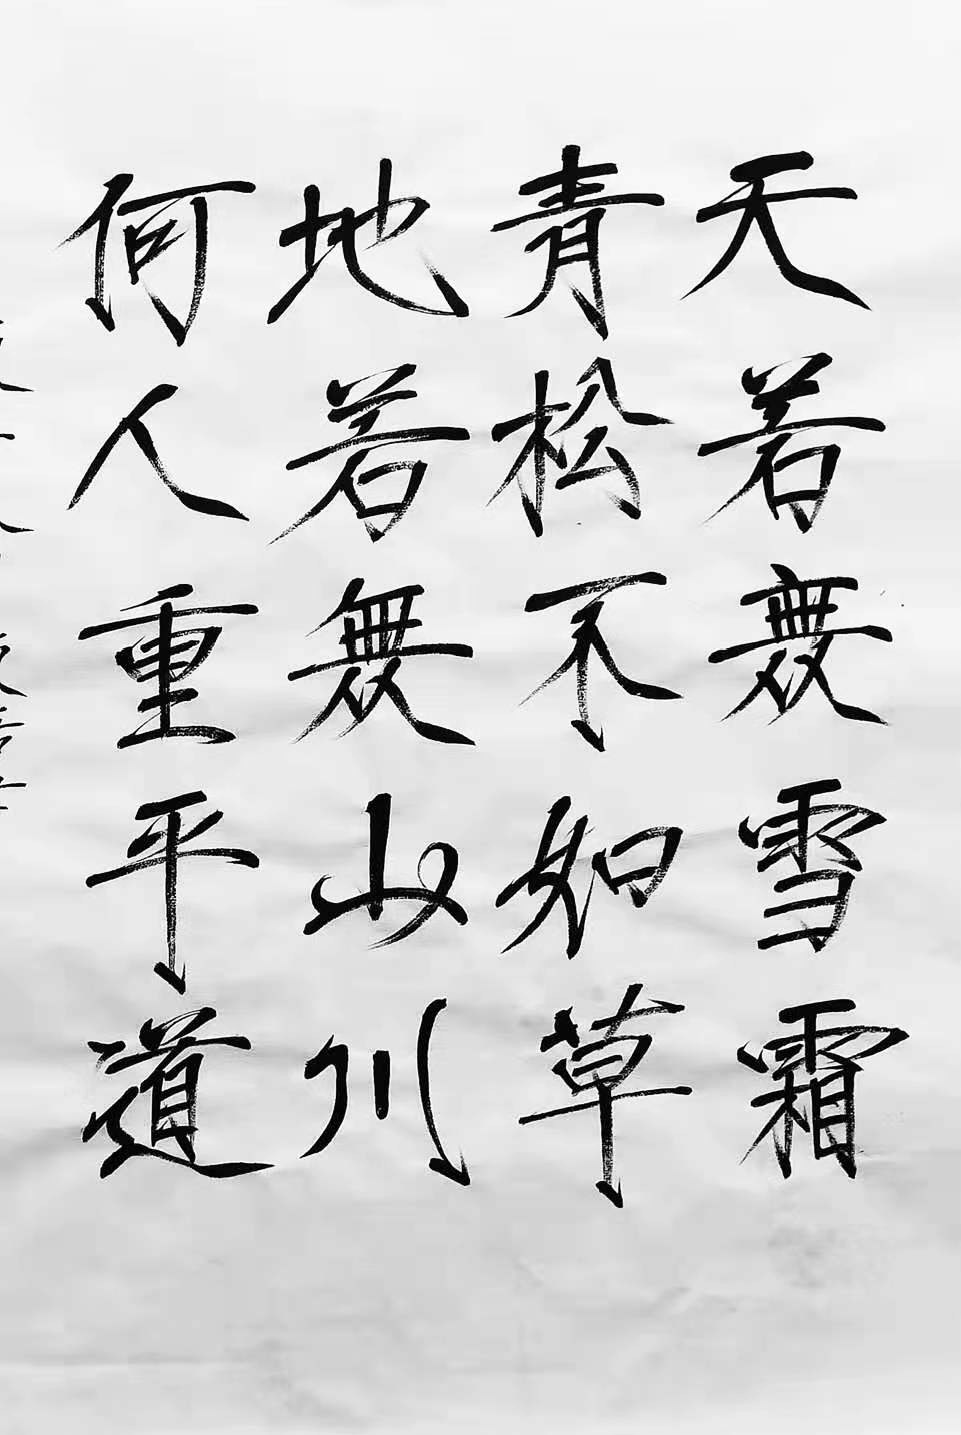 天若無雪霜
青松不如草
地若無山川
何人重平道